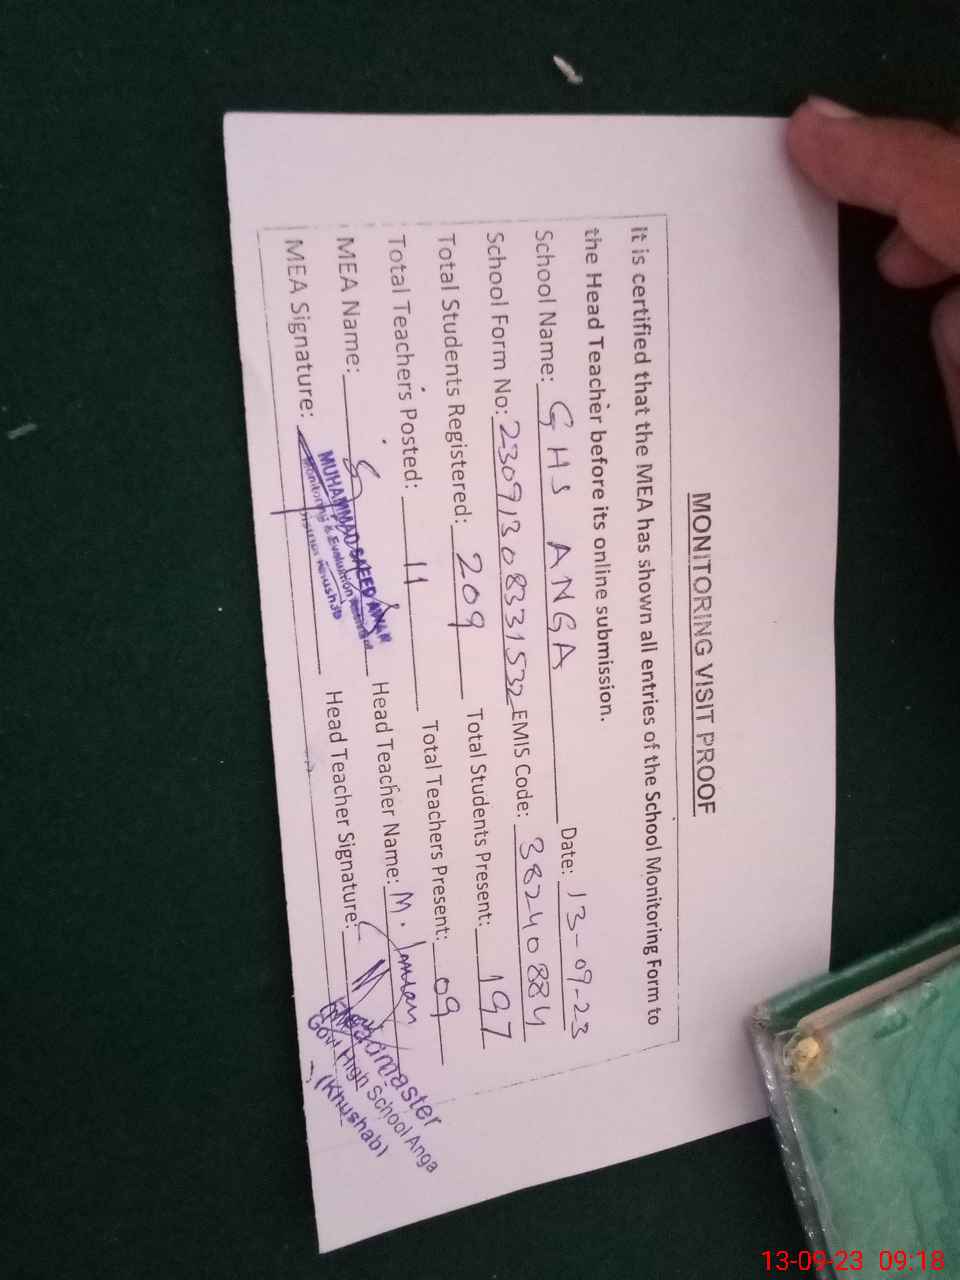 MONITORING VISIT PROOF
It is certified that the MEA has shown all entries of the School Monitoring Form to
the Head Teacher before its online submission.
School Name: GHS ANGA Date: 13-09-23
School Form No: 23091308331532 EMIS Code: 38240884
Total Students Registered: 209 Total Students Present: 197
Total Teachers Posted: 11 Total Teachers Present: 09
MEA Name: Head Teacher Name: M.
MUHAMMAD SAEED
Monitoring & Evaluation
MEA Signature: Head Teacher Signature:
Headmaster
Govt High School Anga
(Khushab)
13-09-23 09:18